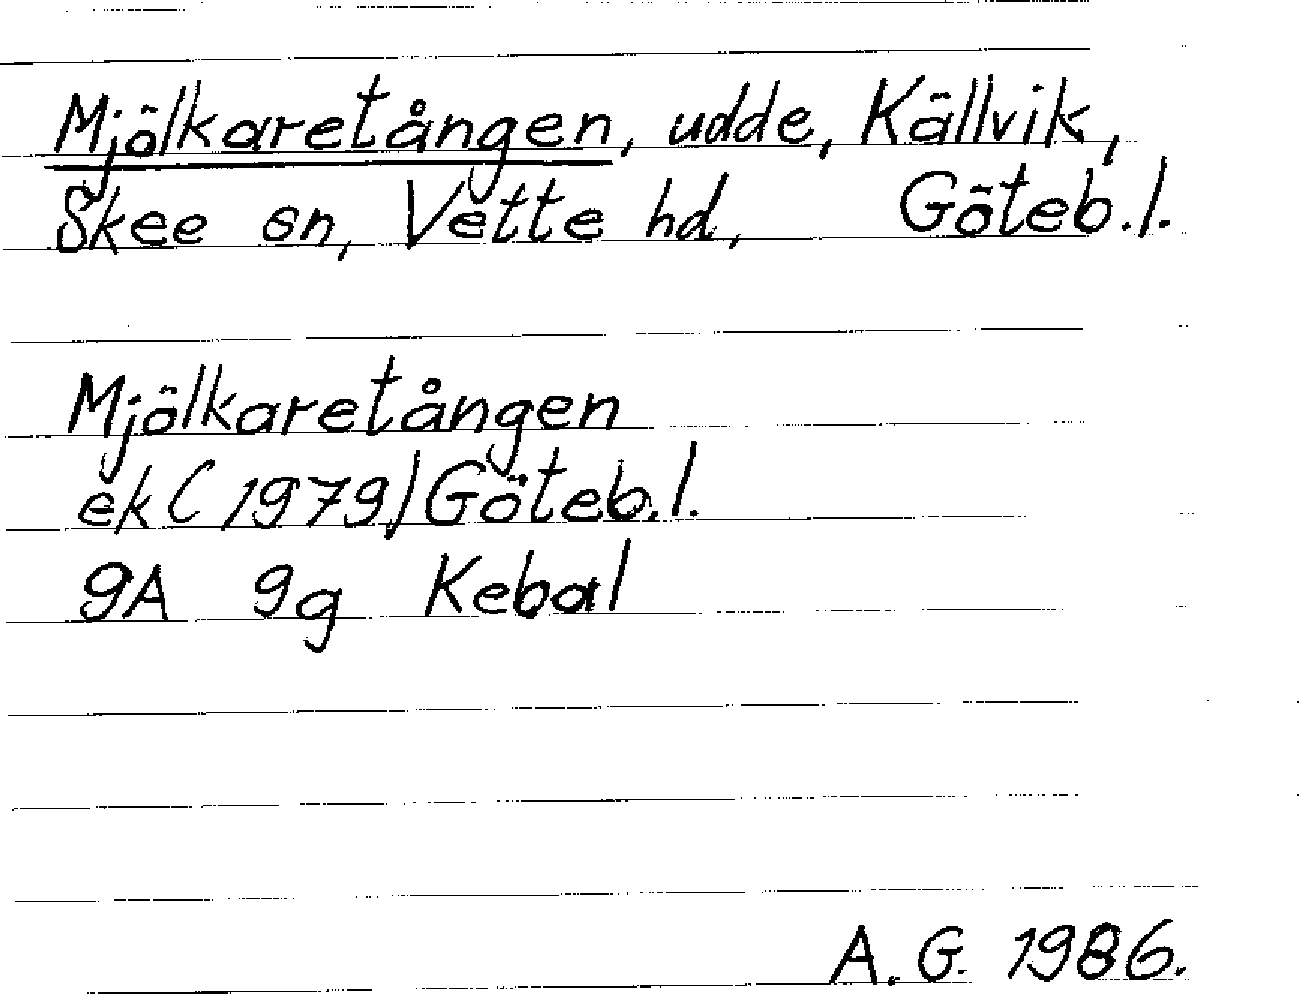 Mjölkaretången, udde, Källvik,
Skee sn, Vette hd, Göteb.l.
Mjölkaretången
ek (1979) Göteb.l.
9A 9g Kebal
A.G. 1986.